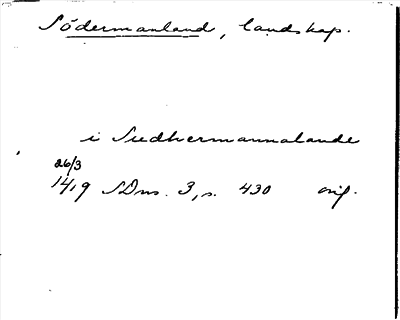 Södermanland, landskap.
i Sudhermannalande
26/3
1419 SDns. 3, s. 430 orig.